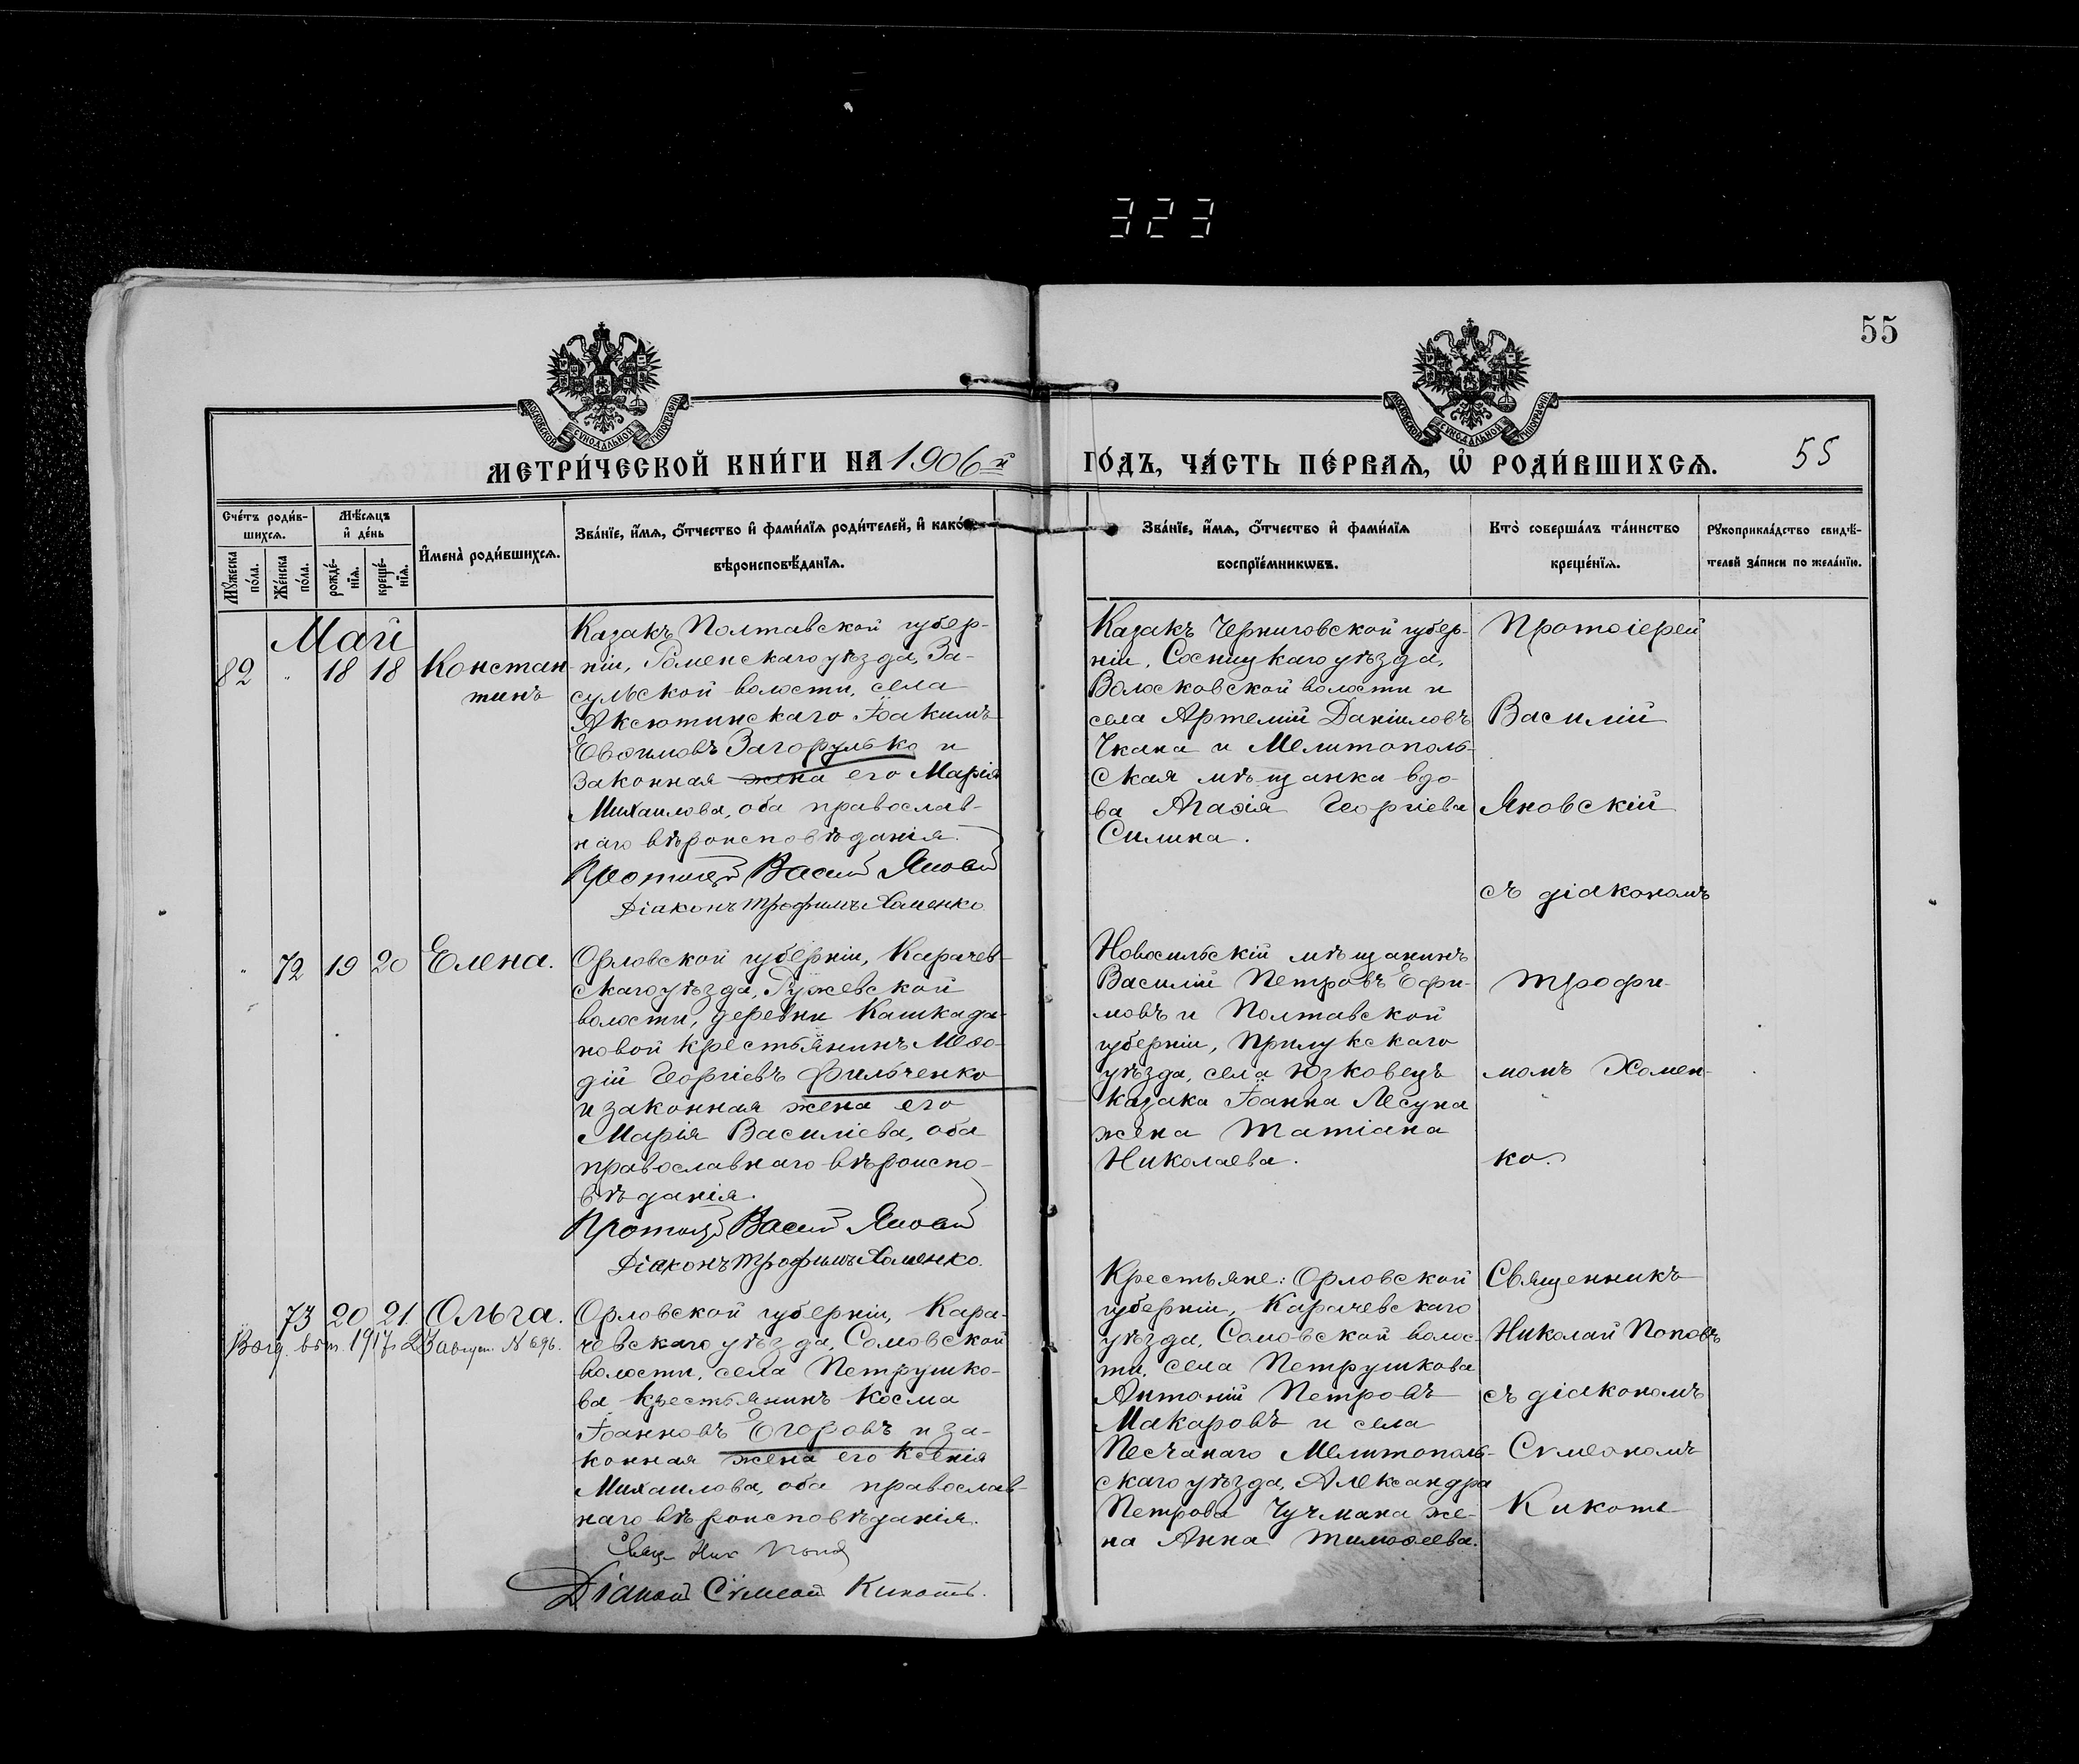 323
55
МОСКОВСКОЙ СУНОДАЛЬНОЙ ТИПОГРАФІИ
МОСКОВСКОЙ СУНОДАЛЬНОЙ ТИПОГРАФІИ
МЕТРИ́ЧЕСКОЙ КНИ́ГИ НА 1906 й
ГО́ДЪ, ЧА́СТЬ ПЕ́РВАѦ, Ѡ РОДИ́ВШИХСѦ. 55
Сче́тъ роди́в-
шихсѧ.
Мѣ́сѧцъ
и҆ де́нь
Мꙋ́жеска
по́ла.
Же́нска
по́ла.
рожде́-
нїѧ.
креще́-
нїѧ.
И҆мена̀ роди́вшихсѧ.
Зва́нїе, и҆́мѧ, ѻ҆́тчество и҆ фами́лїѧ роди́телей, и҆ како́гѡ
вѣроисповѣ́данїѧ.
Зва́нїе, и҆́мѧ, ѻ҆́тчество и҆ фами́лїѧ
воспрїе́мникѡвъ.
Кто̀ соверша́лъ та́инство
креще́нїѧ.
Рꙋкоприкла́дство свидѣ́-
телей за́писи по жела́нїю.
Май
82 " 18 18 Констан-
тинъ
Казакъ Полтавской губер-
ніи, Роменскаго уѣзда, За-
сульской волости, села
Аксютинскаго Іоакимъ
Евѳимовъ Загорулько и
законная жена его Марія
Михаилова, оба православ-
наго вѣроисповѣданія.
Протоіерей Василій Яновскій
Діаконъ Трофимъ Хоменко
Казакъ Черниговской губер-
ніи, Сосницкаго уѣзда,
Волосковской волости и
села Артемій Даніиловъ
Чкана и Мелитополь-
ская мѣщанка вдо-
ва Агаѳія Георгіева
Силина.
Протоіерей
Василій
Яновскій
съ діакономъ
" 72 19 20 Елена.
Орловской губерніи, Карачев-
скаго уѣзда, Дружевской
волости, деревни Кашкада-
новой крестьянинъ Меѳо-
дій Георгіевъ Фильченко
и законная жена его
Марія Василіева, оба
православнаго вѣроиспо-
вѣданія.
Протоіерей Василій Яновскій
Діаконъ Трофимъ Хоменко.
Новосильскій мѣщанинъ
Василій Петровъ Ефи-
мовъ и Полтавской
губерніи, Прилукскаго
уѣзда, села Юзковецъ
казака Іоанна Лесуна
жена Татіана
Николаева.
Трофи-
момъ Хомен-
ко.
73 20 21 Ольга.
1917 23 август. № 696.
Орловской губерніи, Кара-
чевскаго уѣзда, Сомовской
волости, села Петрушко-
ва крестьянинъ Косма
Іоанновъ Егоровъ и за-
конная жена его Ксенія
Михаилова, оба православ-
наго вѣроисповѣданія.
Свящ. Ник Попов
Діаконъ Сѵмеонъ Кикоть.
Крестьяне: Орловской
губерніи, Карачевскаго
уѣзда, Сомовской волос-
ти, села Петрушкова
Антоній Петровъ
Макаровъ и села
Песчанаго Мелитополь-
скаго уѣзда, Александра
Петрова Чучмана же-
на Анна Тимоѳеева.
Священникъ
Николай Поповъ
съ діакономъ
Сѵмеономъ
Кикоть